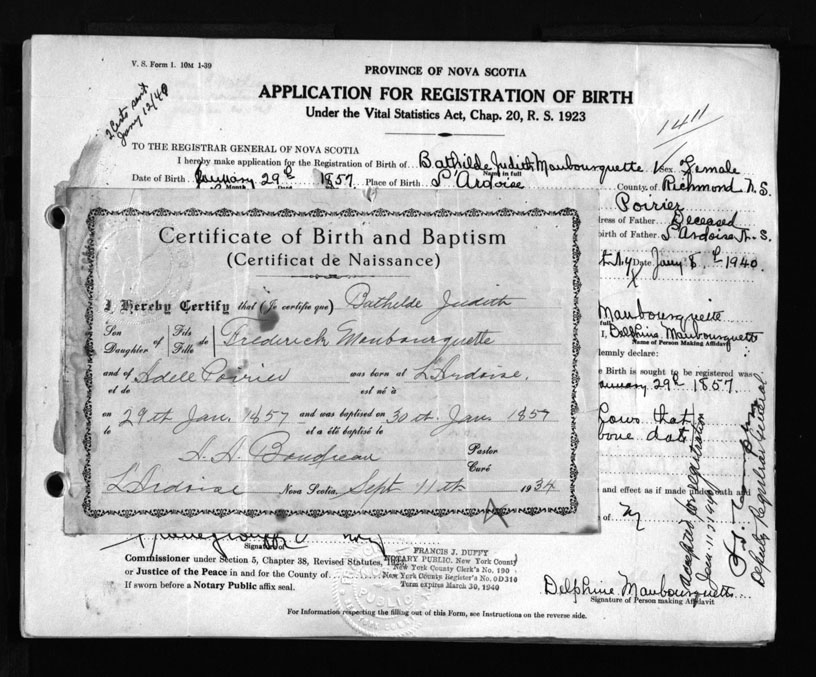 V. S. Form 1. 10M 1-39
2 Certs sent
Jany 12/40
PROVINCE OF NOVA SCOTIA
APPLICATION FOR REGISTRATION OF BIRTH
Under the Vital Statistics Act, Chap. 20, R. S. 1923
1411
TO THE REGISTRAR GENERAL OF NOVA SCOTIA
I hereby make application for the Registration of Birth of Bathilde Judith Maubourquette Sex Female
Name in full
Date of Birth January 29th 1857 Place of Birth L'Ardoise County of Richmond N.S.
Month
Poirier
ress of Father Deceased
birth of Father L'Ardoise N.S.
Date Jany 8th 1940.
Maubourquette
full
I, Delphine Maubourquette
Name of Person Making Affidavit
lemnly declare:
e Birth is sought to be registered was
anuary 29th 1857.
ows that
bove date
and effect as if made under oath and
of
Certificate of Birth and Baptism
(Certificat de Naissance)
I Hereby Certify that (Je certifie que) Bathilde Judith
Son Daughter of Fils Fille de Frederick Maubourquette
and of Adele Poirier was born at L'Ardoise,
et de est né à
on 29th Jan. 1857 and was baptised on 30th Jan 1857
le et a été baptisé le
A. A. Boudreau Pastor
Curé
L'Ardoise Nova Scotia, Sept 11th 1934
Accepted for registration
Jan 11 1940
Deputy Registrar General
Signature of
Commissioner under Section 5, Chapter 38, Revised Statutes, 1923
or Justice of the Peace in and for the County of
If sworn before a Notary Public affix seal.
FRANCIS J. DUFFY
NOTARY PUBLIC, New York County
New York County Clerk's No. 190
New York County Register's No. 0D310
Term expires March 30, 1940
Delphine Maubourquette
Signature of Person making Affidavit
For Information respecting the filling out of this Form, see Instructions on the reverse side.